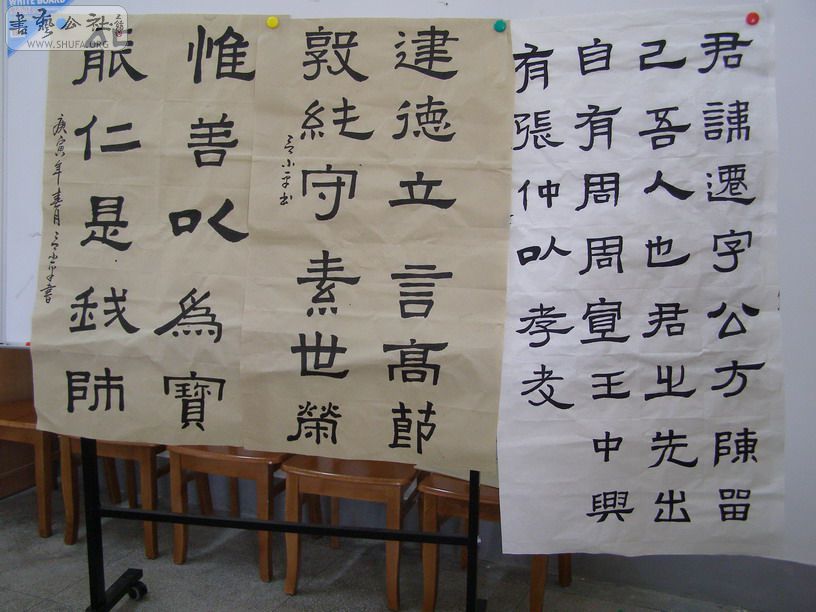 君諱遷字公方陳留
己吾人也君之先出
自有周周宣王中興
有張仲以孝友
建德立言高節
敦純守素世榮
言小平书
惟善以為寶
能仁是我師
庚寅年春月言小平書
書藝公社
WWW.SHUFA.ORG
WHITE BOARD